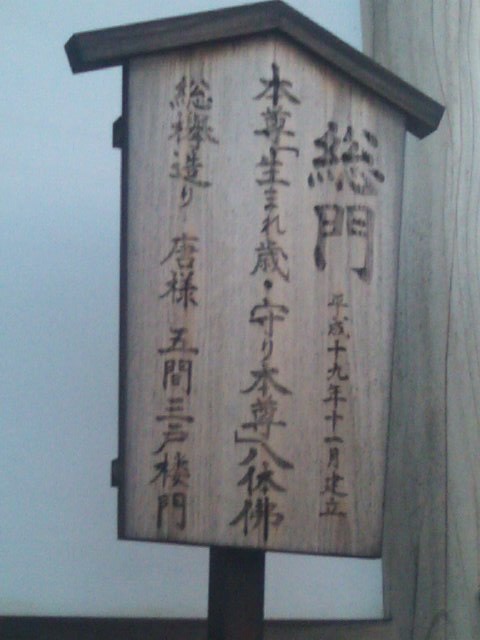 総門 平成十九年十一月建立
本尊「生まれ歳・守り本尊」八体佛
総欅造り 唐様 五間三戸楼門